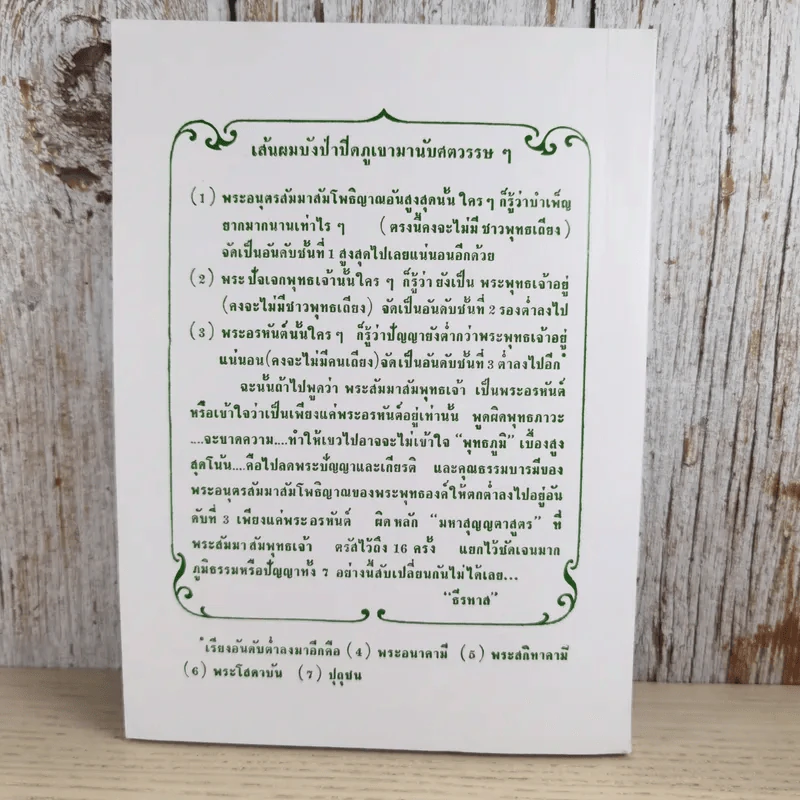 เส้นผมบังป่าปิดภูเขามานับศตวรรษ ๆ
(1) พระอนุตรสัมมาสัมโพธิญาณอันสูงสุดนั้น ใคร ๆ ก็รู้ว่าบำเพ็ญ
ยากมากนานเท่าไร ๆ (ตรงนี้คงจะไม่มี ชาวพุทธเถียง)
จัดเป็นอันดับชั้นที่ 1 สูงสุดไปเลยแน่นอนอีกด้วย
(2) พระปัจเจกพุทธเจ้านั้นใคร ๆ ก็รู้ว่า ยังเป็น พระพุทธเจ้าอยู่
(คงจะไม่มีชาวพุทธเถียง) จัดเป็นอันดับชั้นที่ 2 รองต่ำลงไป
(3) พระอรหันต์นั้นใคร ๆ ก็รู้ว่าปัญญายังต่ำกว่าพระพุทธเจ้าอยู่
แน่นอน(คงจะไม่มีคนเถียง)จัดเป็นอันดับชั้นที่ 3 ต่ำลงไปอีก*
ฉะนั้นถ้าไปพูดว่า พระสัมมาสัมพุทธเจ้า เป็นพระอรหันต์
หรือเข้าใจว่าเป็นเพียงแค่พระอรหันต์อยู่เท่านั้น พูดผิดพุทธภาวะ
....จะขาดความ....ทำให้เขวไปอาจจะไม่เข้าใจ "พุทธภูมิ" เบื้องสูง
สุดโน้น....คือไปลดพระปัญญาและเกียรติ และคุณธรรมบารมีของ
พระอนุตรสัมมาสัมโพธิญาณของพระพุทธองค์ให้ตกต่ำลงไปอยู่อัน
ดับที่ 3 เพียงแค่พระอรหันต์ ผิดหลัก "มหาสุญญตาสูตร" ที่
พระสัมมาสัมพุทธเจ้า ตรัสไว้ถึง 16 ครั้ง แยกไว้ชัดเจนมาก
ภูมิธรรมหรือปัญญาทั้ง 7 อย่างนี้สับเปลี่ยนกันไม่ได้เลย...
"ธีรทาส"
*เรียงอันดับต่ำลงมาอีกคือ (4) พระอนาคามี (5) พระสกิทาคามี
(6) พระโสดาบัน (7) ปุถุชน